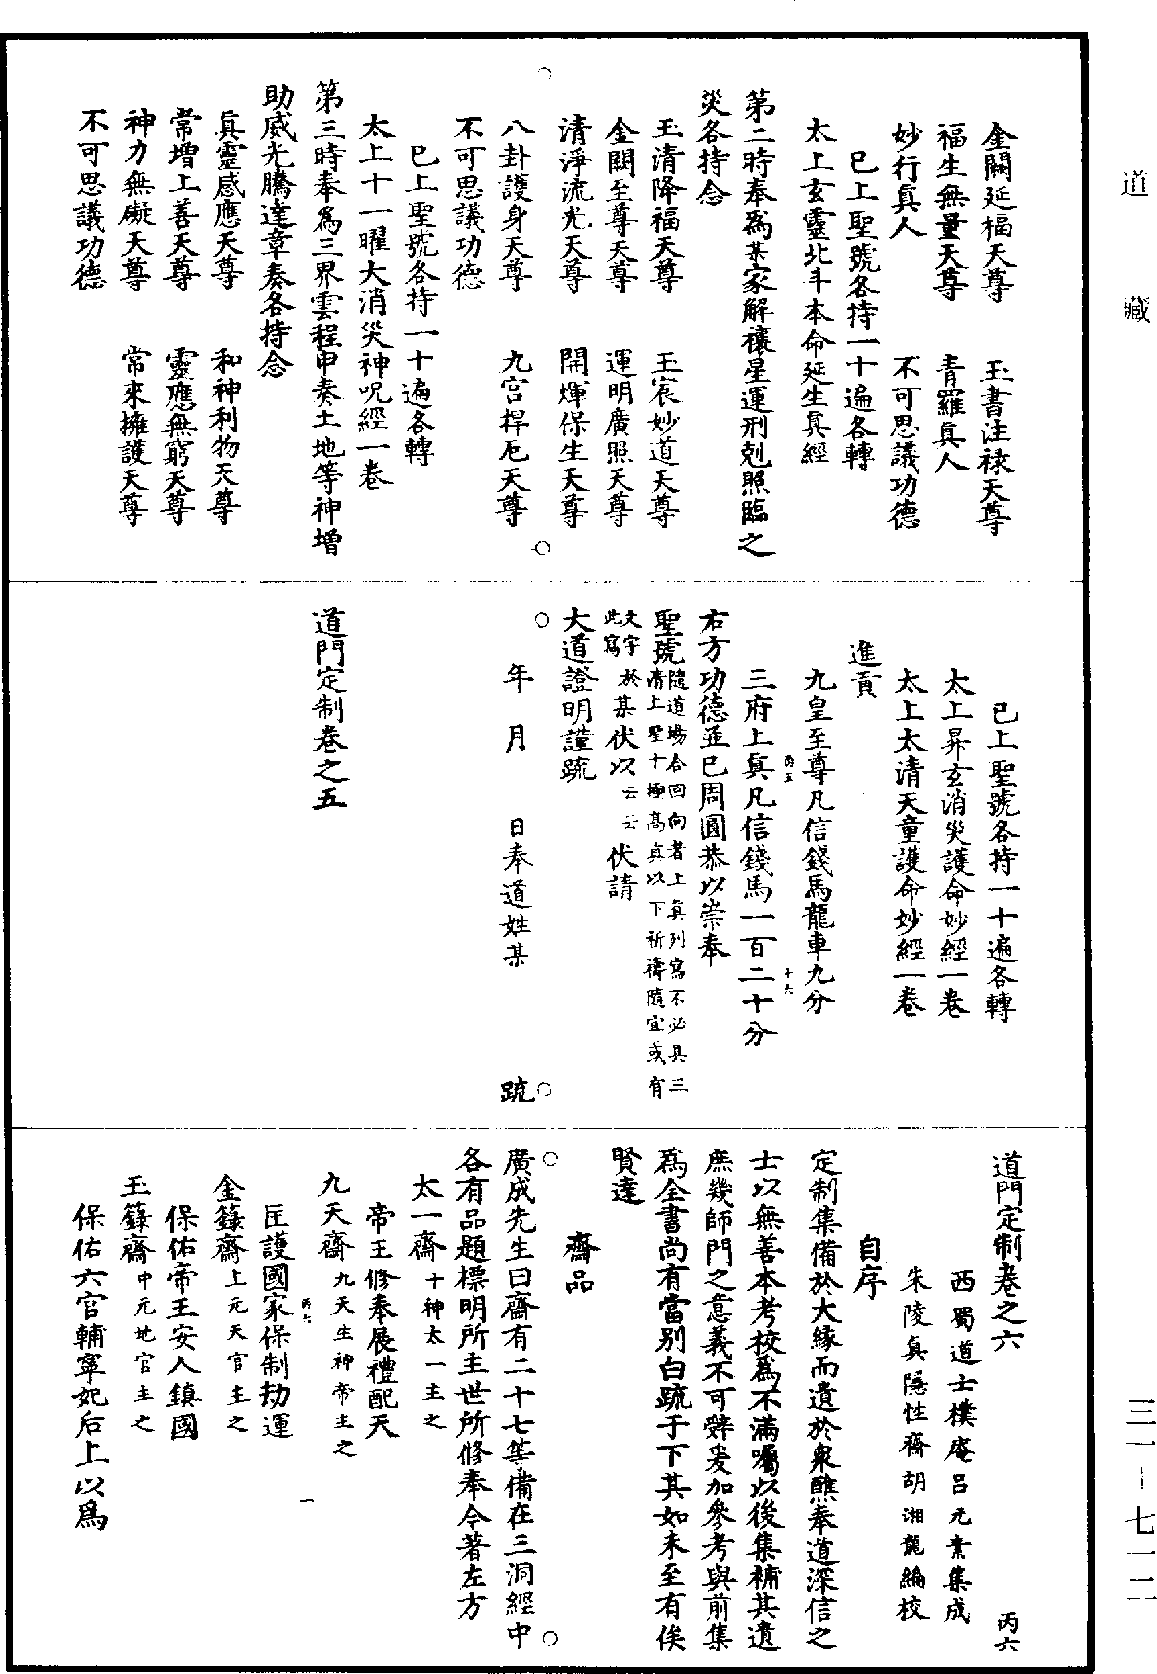 道藏
金闕延福天尊　玉書注祿天尊
福生無量天尊　青羅真人
妙行真人　不可思議功德
已上聖號各持一十遍各轉
太上玄靈北斗本命延生真經
第二時奉為某家解禳星運刑剋照臨之
災各持念
玉清降福天尊　玉宸妙道天尊
金闕至尊天尊　運明廣照天尊
清淨流光天尊　開煇保生天尊
八卦護身天尊　九宮捍厄天尊
不可思議功德
已上聖號各持一十遍各轉
太上十一曜大消災神呪經一卷
第三時奉為三界雲程申奏土地等神增
助威光騰達章奏各持念
真靈感應天尊　和神利物天尊
常增上善天尊　靈應無窮天尊
神力無礙天尊　常來擁護天尊
不可思議功德
已上聖號各持一十遍各轉
太上昇玄消災護命妙經一卷
太上太清天童護命妙經一卷
進貢
九皇至尊凡信錢馬龍車九分
丙五　十六
三府上真凡信錢馬一百二十分
右方功德並已周圓恭以崇奉
聖號隨道場合回向者上真列寫不必具三
清上聖十極高真以下祈禱隨宜或有
文字於此寫某伏以云云伏請
大道證明謹疏
年　月　日奉道姓某　疏
道門定制卷之五
道門定制卷之六　丙六
西蜀道士樸庵呂元素集成
朱陵真隱性齋胡湘龍編校
自序
定制集備於大緣而遺於衆醮奉道深信之
士以無善本考校為不滿囑以後集補其遺
庶幾師門之意義不可辭爰加參考與前集
為全書尚有當別白疏于下其如未至有俟
賢達
齋品
廣成先生曰齋有二十七等備在三洞經中
各有品題標明所主世所修奉今著左方
太一齋十神太一主之
帝王修奉展禮配天
九天齋九天生神帝主之
丙六　一
匡護國家保制劫運
金籙齋上元天官主之
保佑帝王安人鎮國
玉籙齋中元地官主之
保佑六宮輔寧妃后上以為
三一–七一二